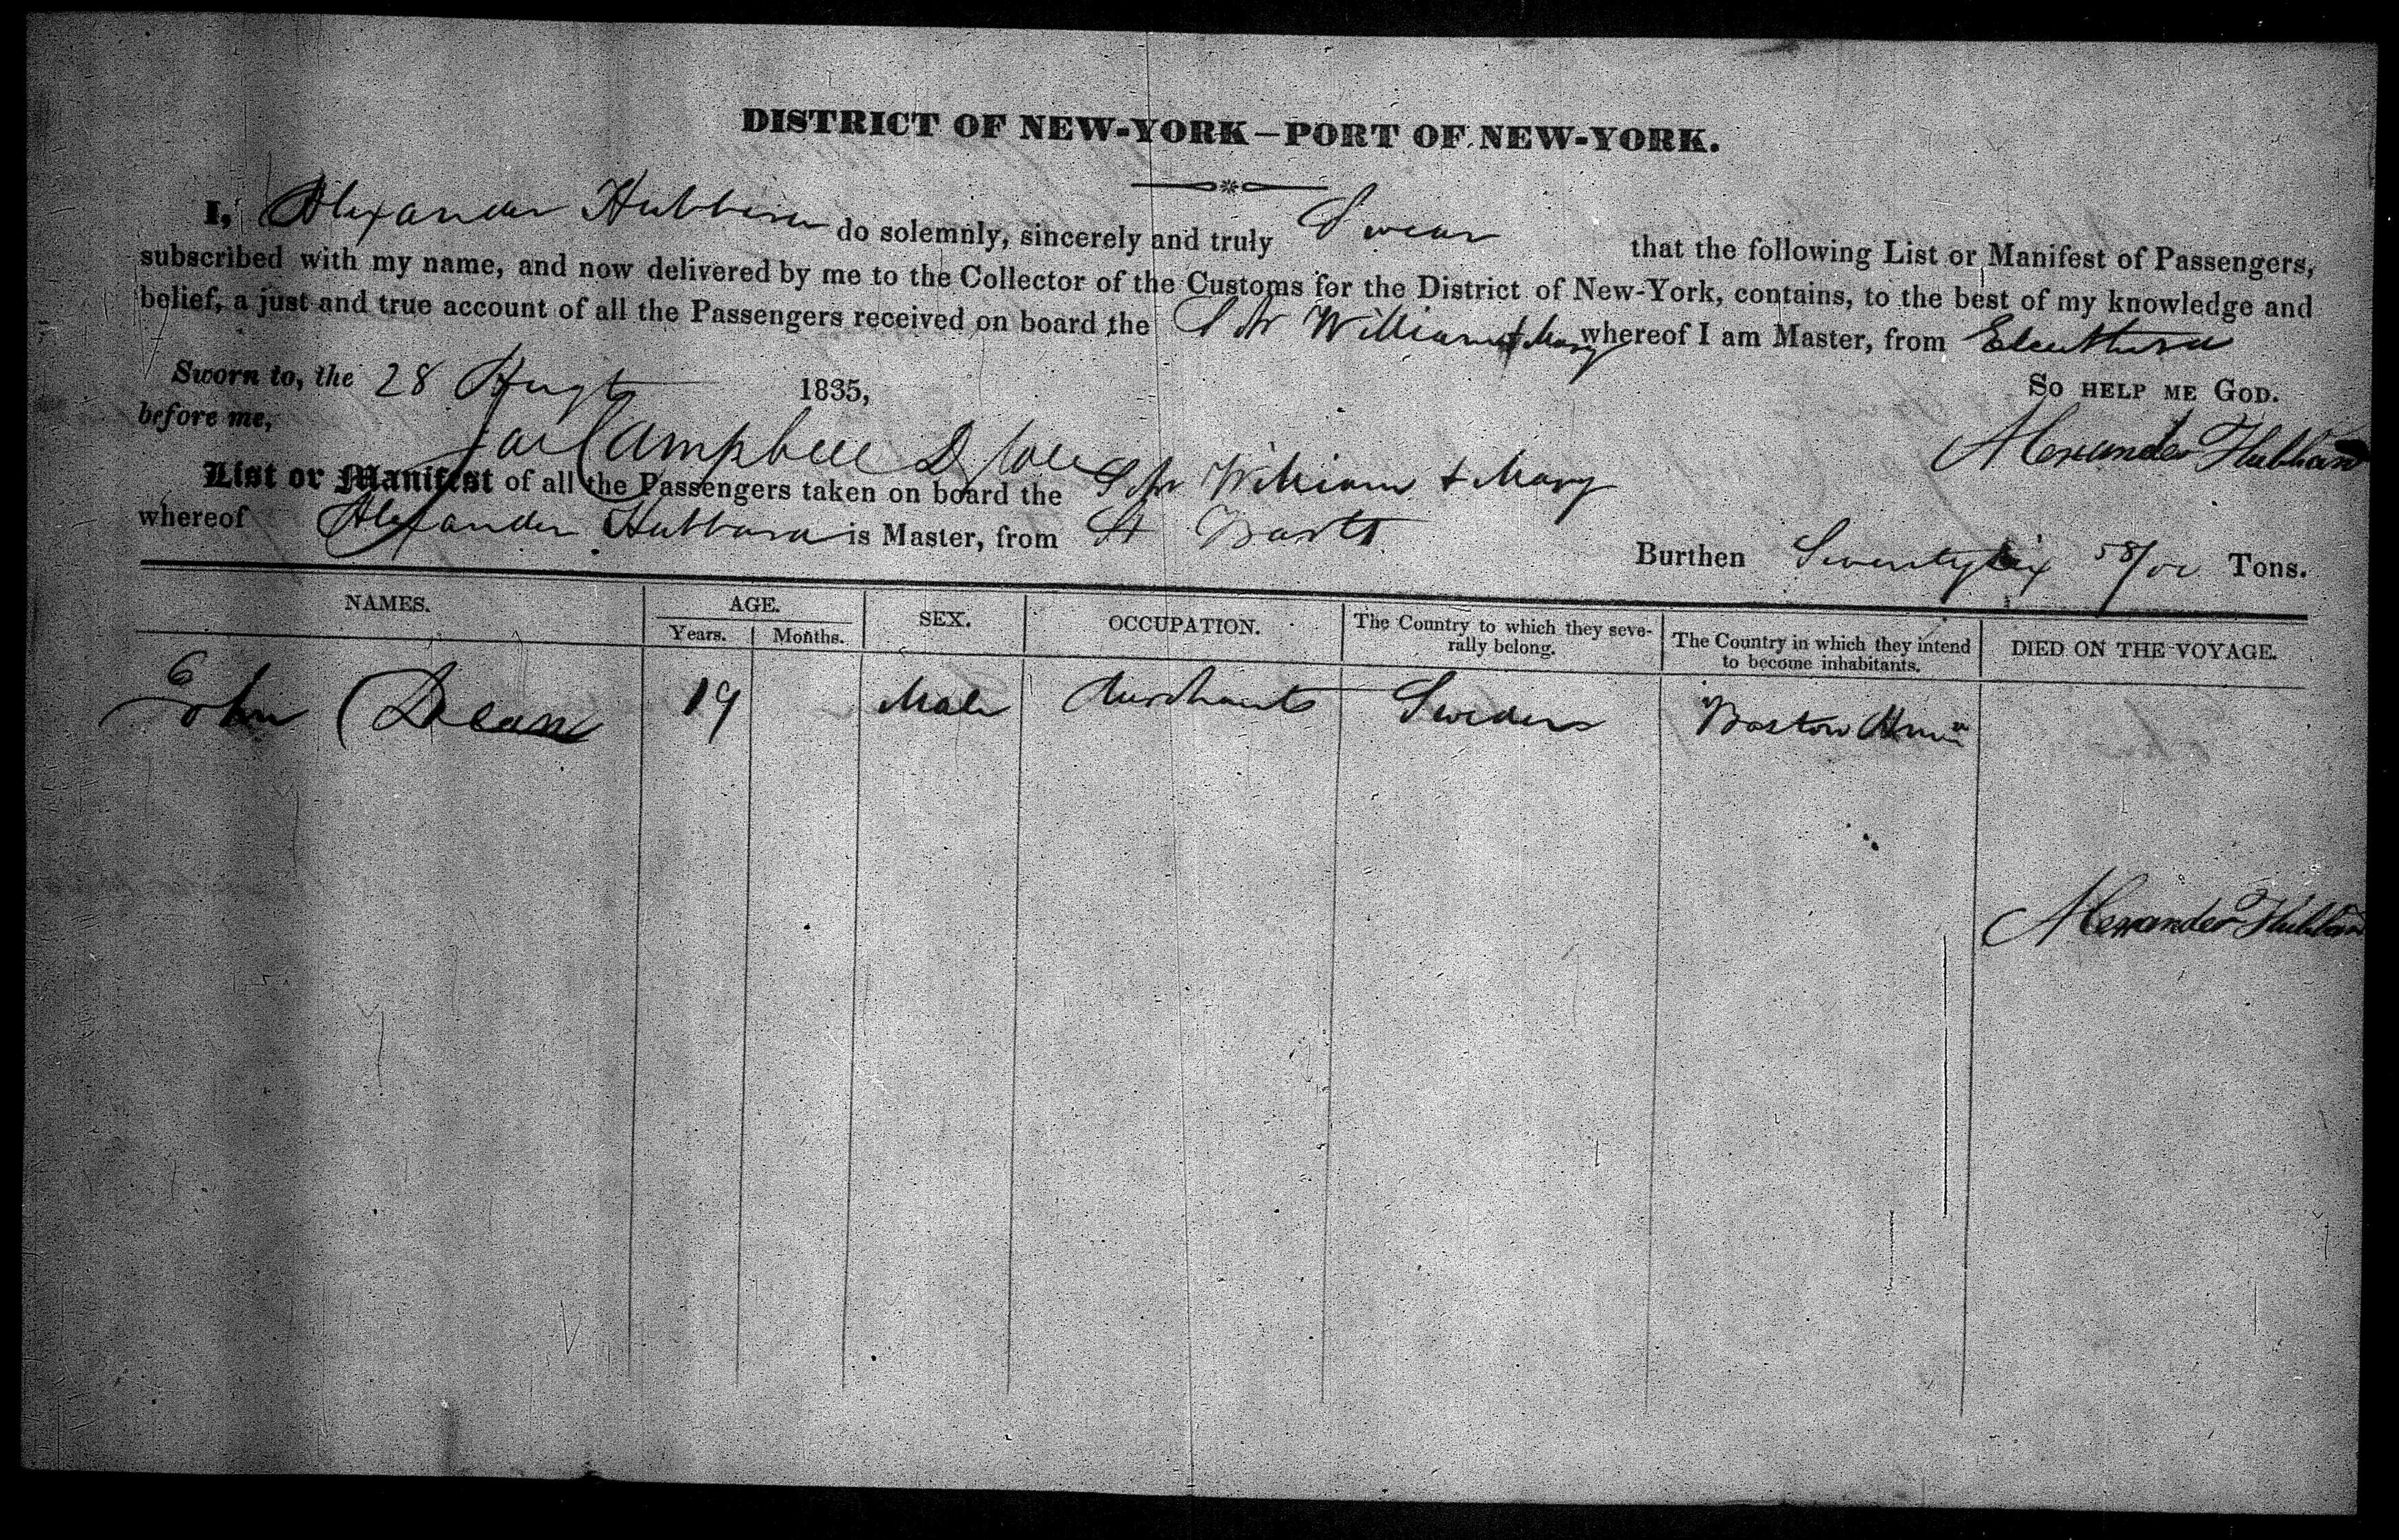 DISTRICT OF NEW-YORK—PORT OF NEW-YORK.
I, Alexander Hubbard do solemnly, sincerely and truly Swear that the following List or Manifest of Passengers,
subscribed with my name, and now delivered by me to the Collector of the Customs for the District of New-York, contains, to the best of my knowledge and
belief, a just and true account of all the Passengers received on board the Schr William & Mary whereof I am Master, from Eleuthera
Sworn to, the 28 Augt 1835, So HELP ME GOD.
before me,
Campbell D Alexander Hubbard
List or Manifest of all the Passengers taken on board the Schr William & Mary
whereof Alexander Hubbard is Master, from St Barts Burthen Seventy Six 58/ Tons.
NAMES. AGE. SEX. OCCUPATION. The Country to which they severally belong. The Country in which they intend to become inhabitants. DIED ON THE VOYAGE.
Years. Months.
John Dean 19 Male Merchant Sweden Boston
Alexander Hubbard